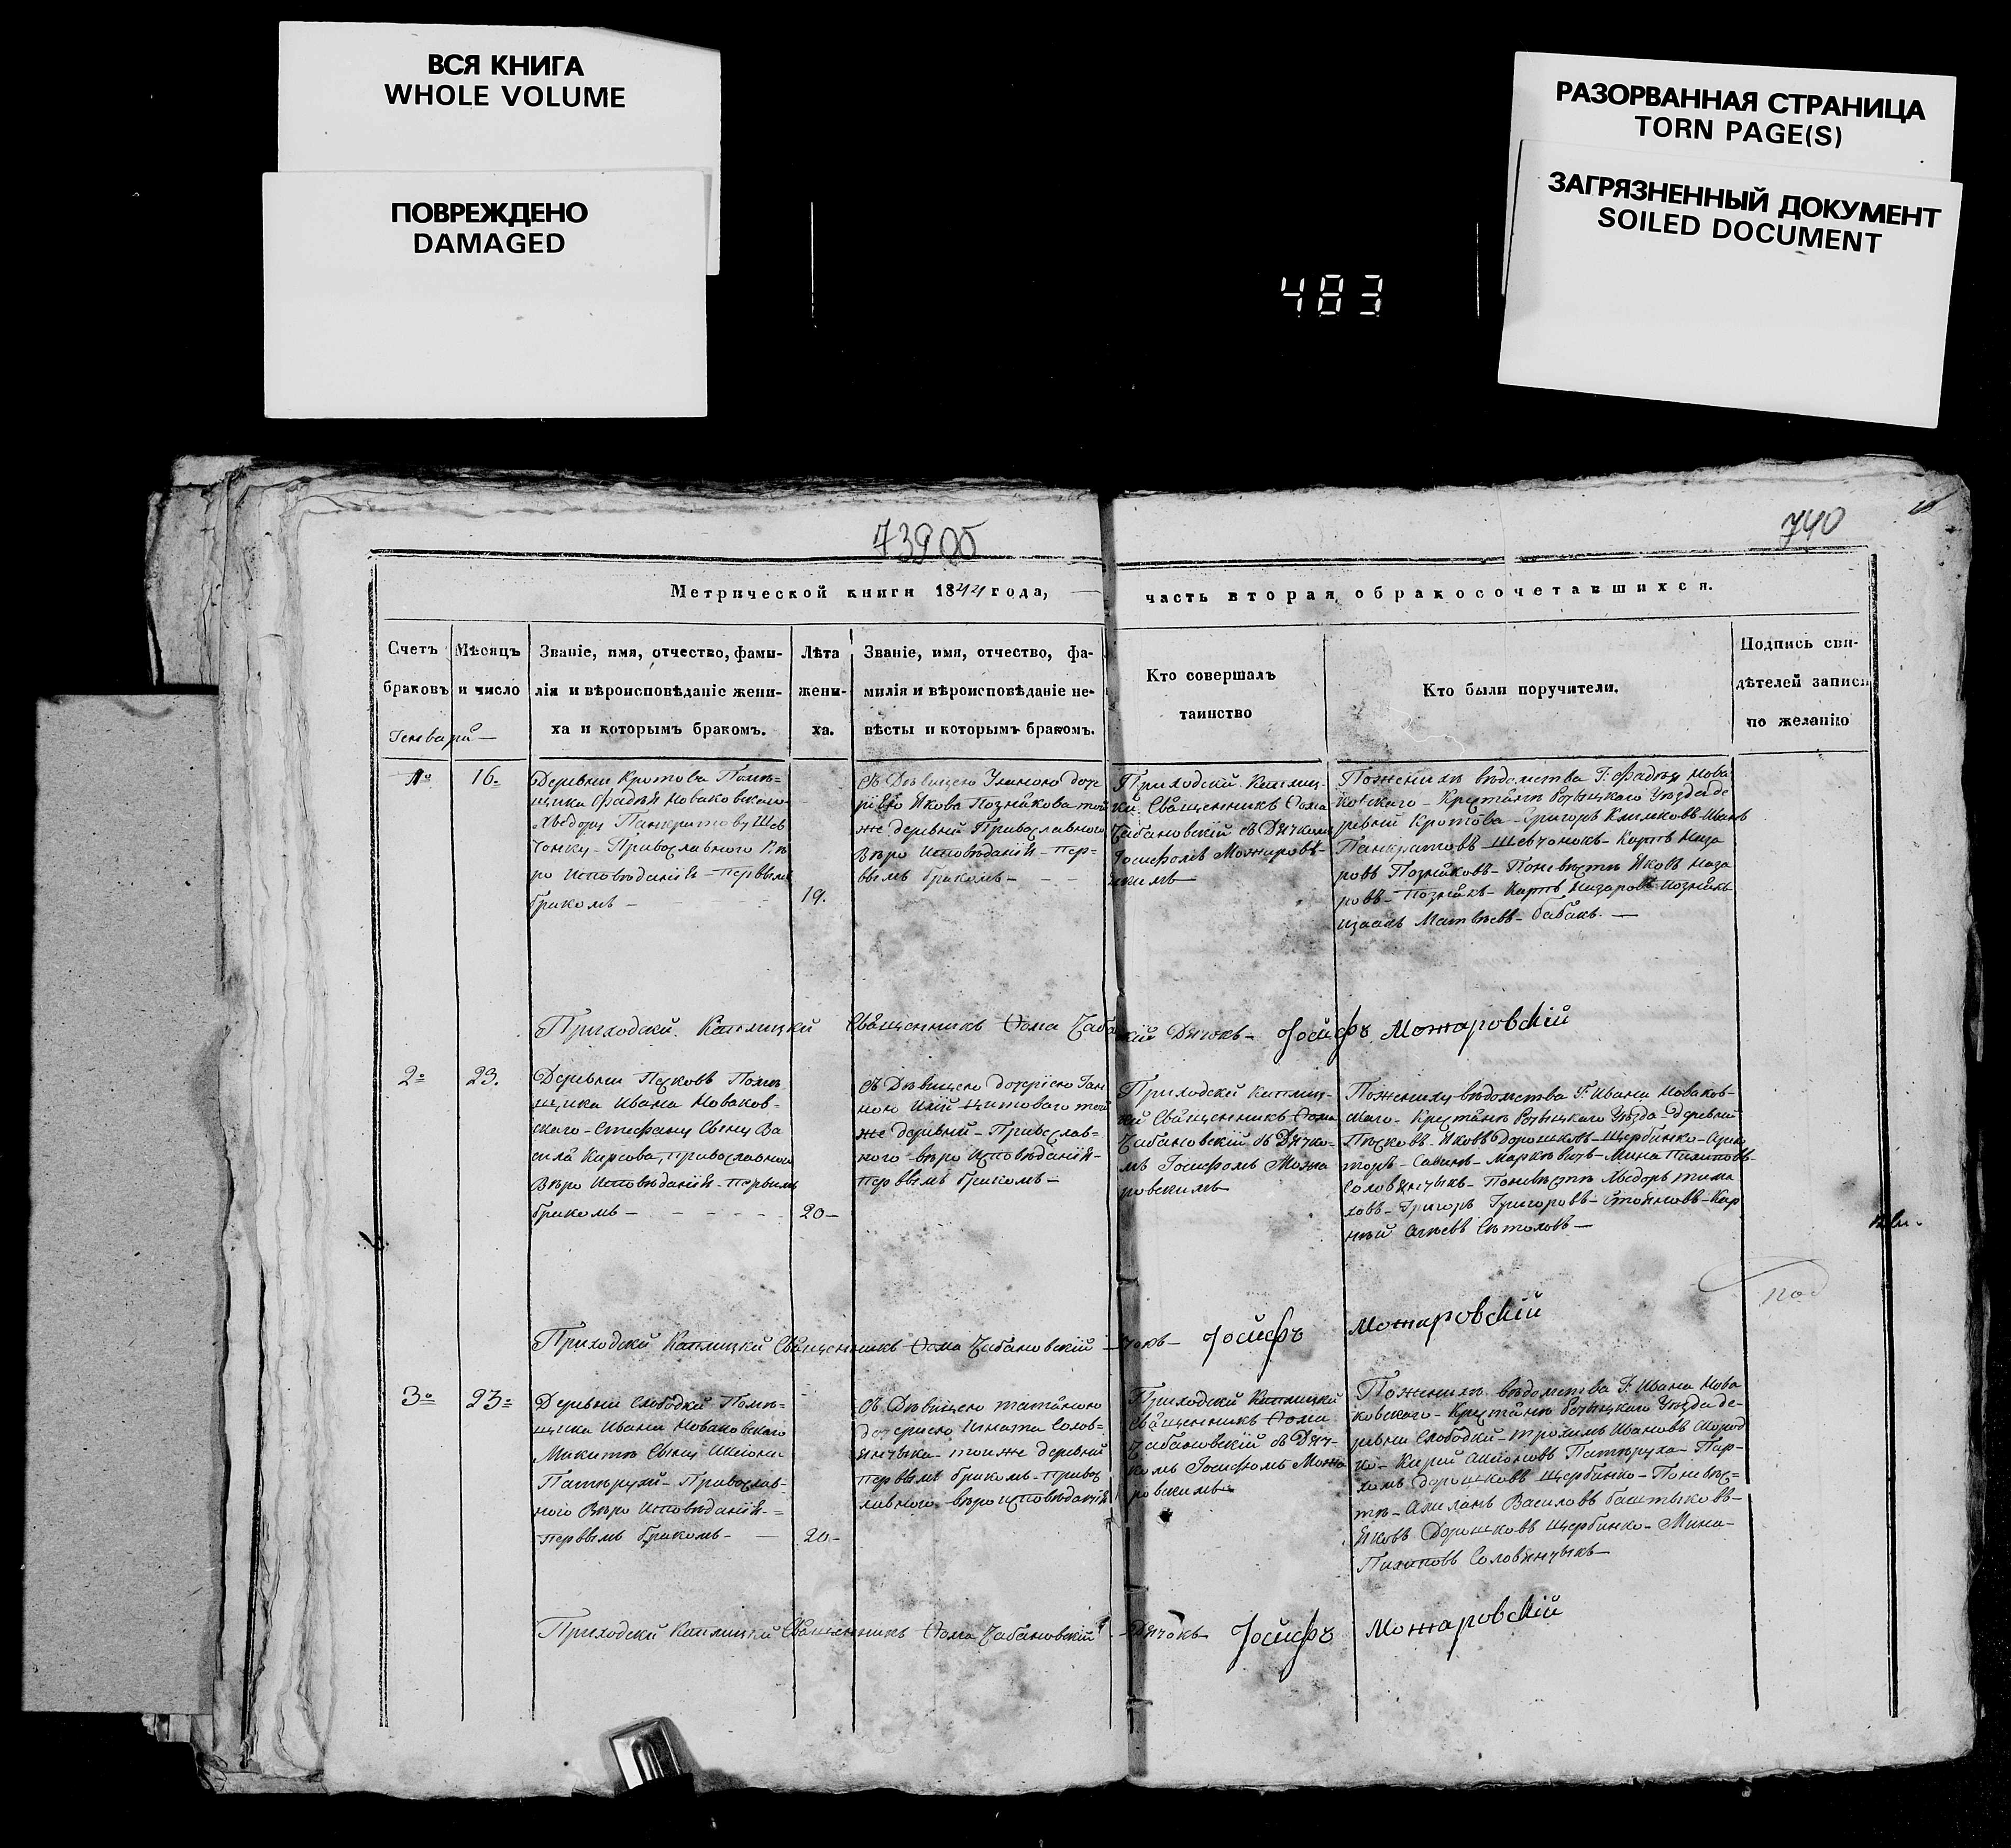 ВСЯ КНИГА
WHOLE VOLUME
ПОВРЕЖДЕНО
DAMAGED
РАЗОРВАННАЯ СТРАНИЦА
TORN PAGE(S)
ЗАГРЯЗНЕННЫЙ ДОКУМЕНТ
SOILED DOCUMENT
483
739 об
740
Метрической книги 1844 года, часть вторая, о бракосочетавшихся.
Счетъ
браковъ
Мѣсяцъ
и число
Званіе, имя, отчество, фами-
лія и вѣроисповѣданіе жени-
ха и которымъ бракомъ.
Лѣта
жени-
ха.
Званіе, имя, отчество, фа-
милія и вѣроисповѣданіе не-
вѣсты и которымъ бракомъ.
Кто совершалъ
таинство
Кто были поручители.
Подпись сви-
дѣтелей записи
по желанію
Генварй
1о
16.
Деревни Кротова Помѣ=
щика Фадѣя Новаковского
Хведору Панкратову Шев
чонку - Православного Вѣ
ро исповѣданій - первымъ
бракомъ -
19.
Съ Дѣвицею Улиною доче
рїею Якова Познякова той
же деревнй Православного
Вѣро исповѣданія - пер=
вымъ бракомъ -
Приходскй Каплиц-
кй Священникъ Фома
Чабановскій съ Дячкомъ
Іосифомъ Можаровс-
кимъ
Поженихѣ вѣдомства Г: Фадѣя Нова
ковского - Крестянѣ Рѣчицкаго Уѣзда де
ревнй Кротова - Григоръ Климковъ - Иванъ
Панкратовъ - Шевчонокъ - Карпъ Наза
ровъ Позняковъ - Поневѣстѣ Яковъ Наза
ровъ - Познякъ - Карпъ Назаровъ Познякъ
Изаакъ Матвѣевъ - Бабакъ. -
Приходскй Каплицкй Священникъ Фома
Дячокъ - Іосифъ Можаровскій
2о
23.
Деревни Песковъ Помѣ
щика Ивана Новаков-
ского - Стефану Сыну Ва
сила Кирсова, православного
Вѣро исповѣданій - первымъ
бракомъ -
20-
Съ Дѣвицею дочерїею Ган
ною той
же деревнй - Православ=
ного - вѣро исповѣданія -
первымъ бракомъ -
Приходскй Каплиц-
кй Священникъ Фома
Чабановскій съ Дячко-
мъ Іосифомъ Можа
ровскимъ
Поженихѣ вѣдомства Г: Ивана Новаков-
ского - Крестянѣ Рѣчицкаго Уѣзда - деревнй
Пѣсковъ - Яковъ Дорошковъ - Щербинко -
Мина Пилиповъ -
Соловянчыкъ - Поневѣстѣ Хведоръ
Григоръ Григоровъ -
Приходскй Каплицкй Священникъ Фома Чабановскій -
чокъ - Іосифъ Можаровскій
под
3о
23=
Деревнй Слободкй Помѣ=
щика Ивана Новаковского
Микитѣ Сыну
Православ-
ного Вѣро исповѣданій - =
первымъ бракомъ -
20-
Съ Дѣвицею татяною
дочерїею Игната Солов=
янчыка - тоиже деревнй
первымъ бракомъ - правос
лавного вѣро исповѣданій
Приходскй Каплицкй
Священникъ Фома
Чабановскій съ Дяч-
комъ Іосифомъ Можа
ровскимъ
Поженихѣ вѣдомства Г: Ивана Нова
ковского - Крестянѣ Рѣчицкаго Уѣзда де-
ревни Слободкй - трохимъ Ивановъ
Пар-
хомъ Дорошковъ Щербинко - Поневѣс=
тѣ - Василовъ
Яковъ Дорошковъ Щербинко - Мина -
Пилиповъ Соловянчыкъ -
Приходскй Каплицкй Священникъ Фома Чабановскій
- Дячокъ Іосифъ Можаровскій